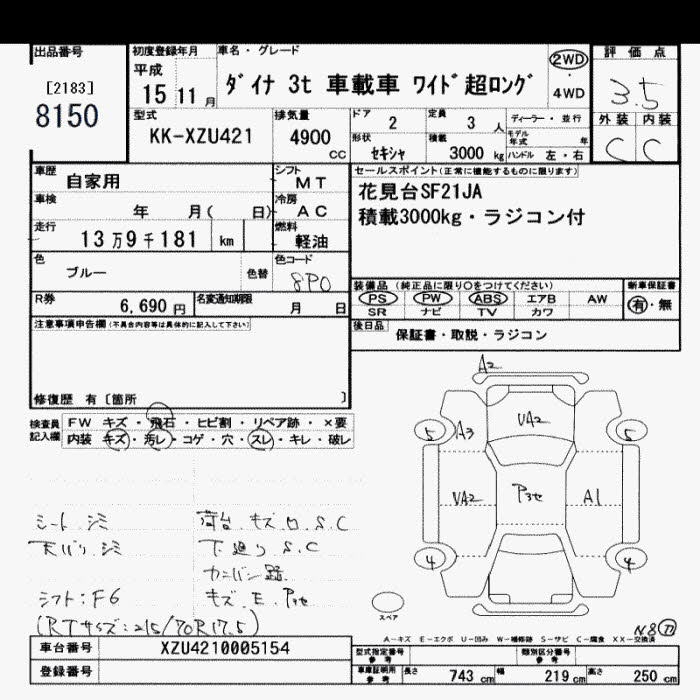 出品番号 初度登録年月 車名・グレード 評価点
[2183] 平成 ダイナ 3t 車載車 ワイド 超ロング 2WD・4WD 3.5
8150 15年11月
型式 排気量 ドア 定員 ディーラー・並行 外装 内装
KK-XZU421 4900 CC 2 3 人 モデル年式 年 C C
形状 積載 ハンドル 左・右
セキシャ 3000 kg
車歴 自家用 シフト MT セールスポイント(正常に機能するものに限ります)
車検 年 月( 日) 冷房 AC 花見台SF21JA
走行 13万9千181 km 燃料 軽油 積載3000kg・ラジコン付
色 ブルー 色替 色コード 8P0
装備品(純正品に限り○をつけてください) 新車保証書
PS PW ABS エアB AW 有・無
SR ナビ TV カワ
R券 6,690円 名変通知期限 月 日
後日品 保証書・取説・ラジコン
注意事項申告欄(不具合内容等は具体的に記入して下さい)
修復歴 有〔箇所 〕
検査員記入欄 FW キズ・飛石・ヒビ割・リペア跡・×要
内装 キズ・汚レ・コゲ・穴・スレ・キレ・破レ
A2
VA2
5 A3 5
VA2 P3セ A1
4 4
シート.シミ 荷台.キズ.凹.S.C
天バリ.シミ 下廻り.S.C
カンバン跡
シフト:F6 キズ.E.P3セ
(RTサズ:215/70R17.5)
スペア
N8
A-キズ E-エクボ U-凹み W-補修跡 S-サビ C-腐食 XX-交換済
車台番号 XZU4210005154 型式指定番号 参考 類別区分番号 参考
登録番号 車庫証明用 参考 長さ 743 cm 幅 219 cm 高さ 250 cm